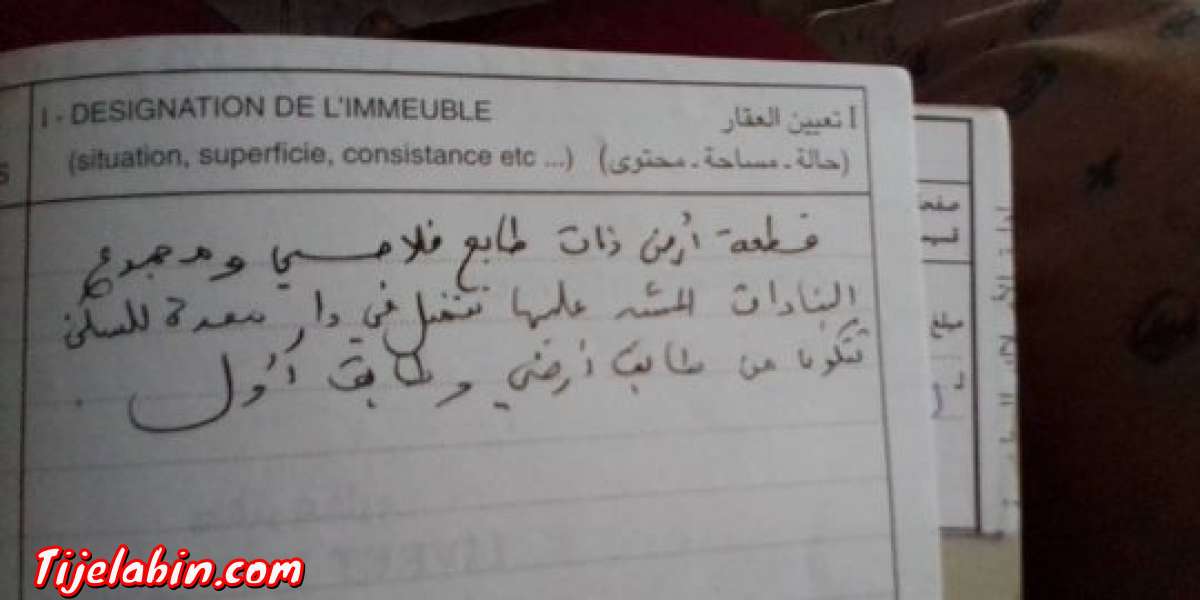 I - DESIGNATION DE L'IMMEUBLE
I تعيين العقار
(situation, superficie, consistance etc ...) (حالة - مساحة - محتوى)
قطعة أرض ذات طابع فلاحي ومجموع
البنايات عليها تتمثل في دار معدة للسكن
تتكون من طابق أرضي وطابق أول .
Tijelabin.com